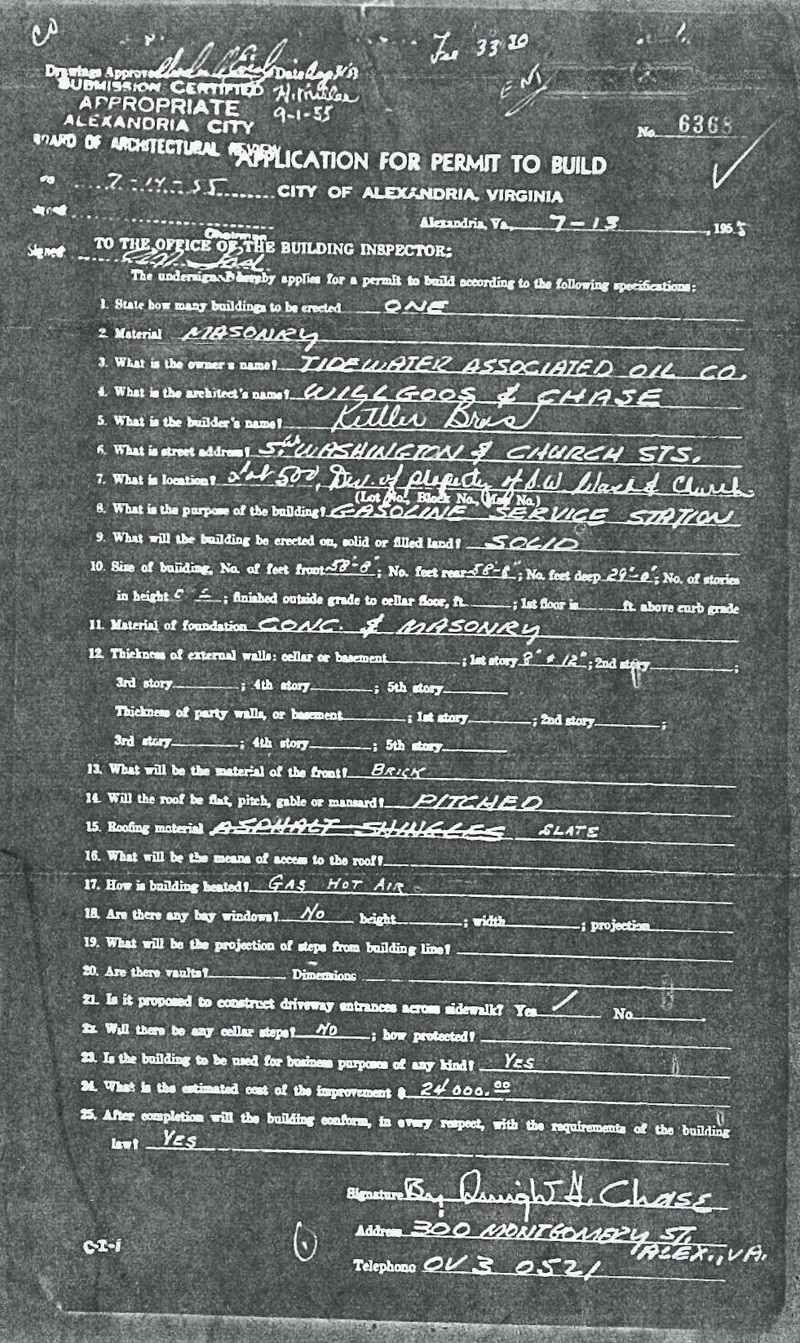 Fee 33 30
Drawings Approved Date
SUBMISSION CERTIFIED
APPROPRIATE
9-1-55
ALEXANDRIA CITY
No. 6368
BOARD OF ARCHITECTURAL REVIEW
APPLICATION FOR PERMIT TO BUILD
7-14-55
CITY OF ALEXANDRIA, VIRGINIA
Alexandria, Va., 7-13, 1955
Chairman
TO THE OFFICE OF THE BUILDING INSPECTOR:
Signed
The undersigned hereby applies for a permit to build according to the following specifications:
1. State how many buildings to be erected ONE
2. Material MASONRY
3. What is the owner's name? TIDEWATER ASSOCIATED OIL CO.
4. What is the architect's name? WILLGOOS & CHASE
5. What is the builder's name? Kettler Bros
6. What is street address? S.W. WASHINGTON & CHURCH STS.
7. What is location? Lot 500, Div. of Property of S.W. Wash & Church
(Lot No., Block No., Map No.)
8. What is the purpose of the building? GASOLINE SERVICE STATION
9. What will the building be erected on, solid or filled land? SOLID
10. Size of building, No. of feet front 58'-8"; No. feet rear 58'-8"; No. feet deep 29'-0"; No. of stories
in height; finished outside grade to cellar floor, ft.; 1st floor is ft. above curb grade
11. Material of foundation CONC. & MASONRY
12. Thickness of external walls: cellar or basement; 1st story 8" & 12"; 2nd story;
3rd story; 4th story; 5th story
Thickness of party walls, or basement; 1st story; 2nd story;
3rd story; 4th story; 5th story
13. What will be the material of the front? BRICK
14. Will the roof be flat, pitch, gable or mansard? PITCHED
15. Roofing material ASPHALT SHINGLES SLATE
16. What will be the means of access to the roof?
17. How is building heated? GAS HOT AIR
18. Are there any bay windows? NO height; width; projection
19. What will be the projection of steps from building line?
20. Are there vaults? Dimensions
21. Is it proposed to construct driveway entrances across sidewalk? Yes ✓ No
22. Will there be any cellar steps? NO; how protected?
23. Is the building to be used for business purposes of any kind? YES
24. What is the estimated cost of the improvement $ 24 000.00
25. After completion will the building conform, in every respect, with the requirements of the building
law? YES
Signature By Dwight G. Chase
Address 300 MONTGOMERY ST.
ALEX., VA.
C-I-1
Telephone OV 3 0521